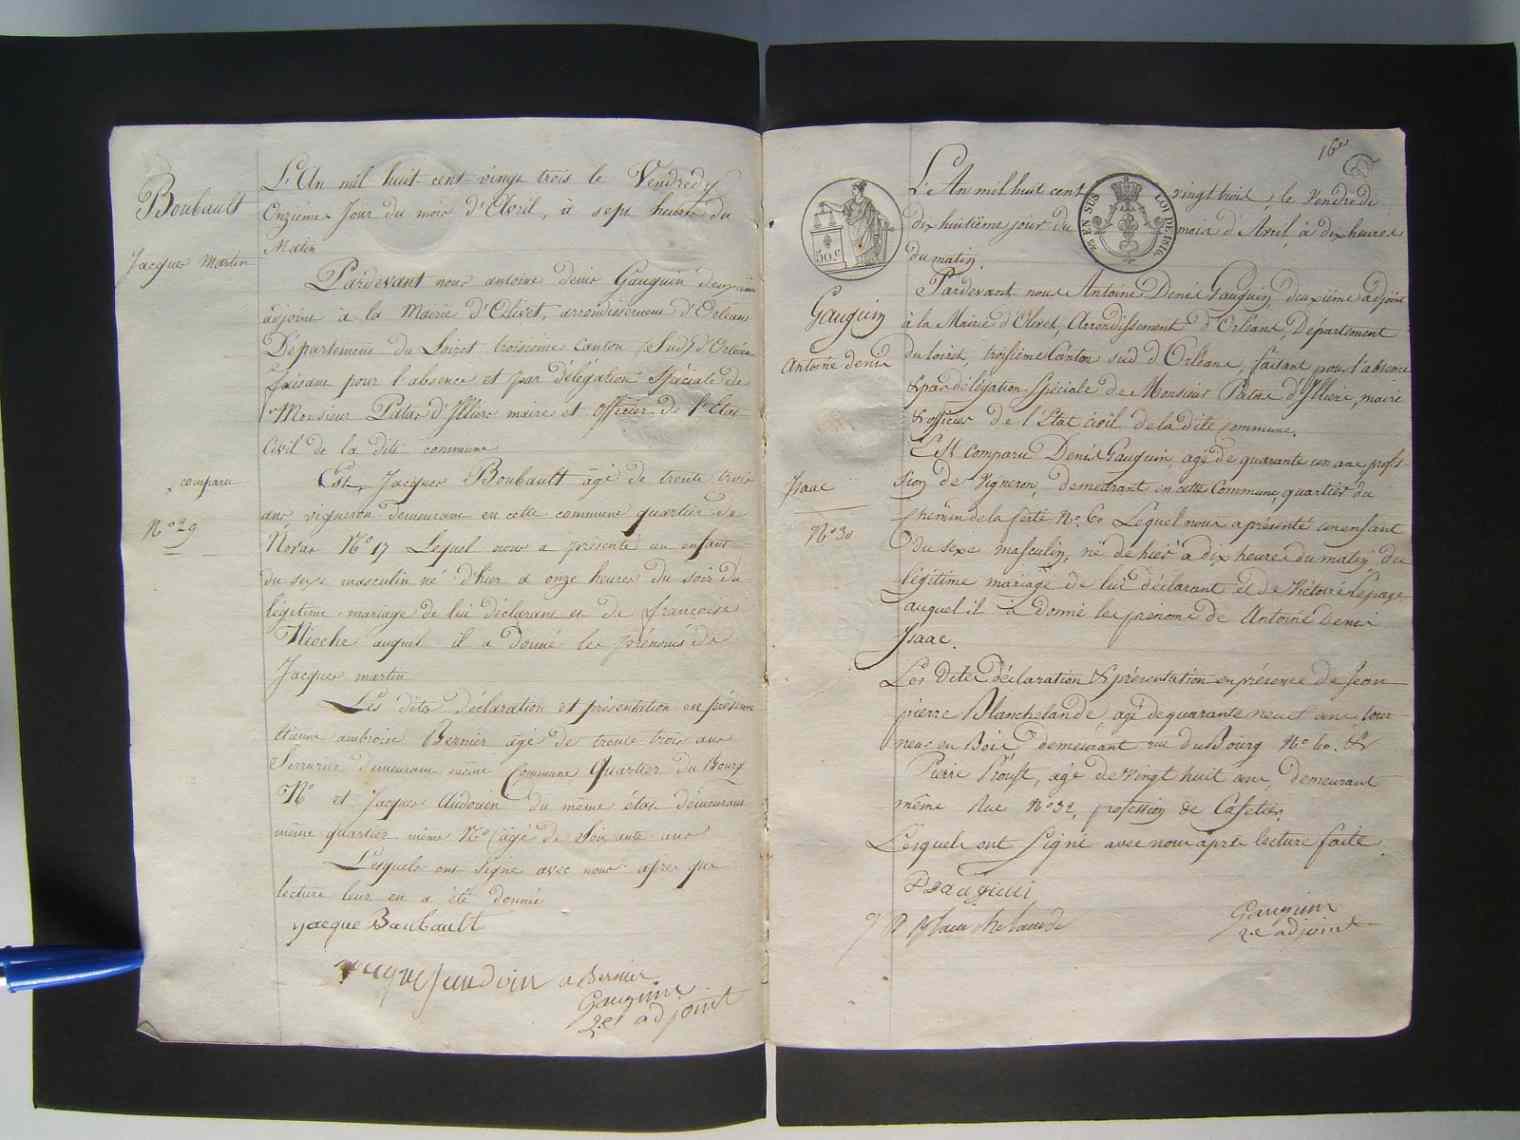 Boubault
Jacques Martin
comparu
N.° 29
L'An mil huit cent vingt trois le Vendredy
Onzieme Jour du mois d'Avril, à sept heures du
Matin
Pardevant nous antoine denis Gauguin deuxieme
adjoint à la Mairie d'Olivet, arrondissement d'Orléans
Département du Loiret troisieme canton (Sud) d'Orléans
faisant pour l'absence et par délégation Spéciale de
Monsieur Patas d'Illiers maire et officier de l'Etat
Civil de la dite commune
Est Jacques Boubault agé de trente trois
ans vigneron demeurant en cette commune quartier de
N° 17 Lequel nous a présenté un enfant
du sexe masculin né d'hier a onze heures du soir du
légitime mariage de lui déclarant et de francoise
Mioche auquel il a donné les prénoms de
Jacques martin
Les dites déclaration et présentation en présence
ambroise Bernier agé de trente trois ans
Serrurier demeurant même Commune Quartier du Bourg
N° et Jacques Audouin du même état demeurant
même quartier même N° (agé de Soixante ans
Lesquels ont Signé avec nous apres que
lecture leur en a été donné
yacque Boubault
jacque jaudoin a Bernier
Gauguin
2e adjoint
16
50 c
EN SUS
LOI DE 1816
Gauguin
Antoine denis
Isaac
N° 30
L'An mil huit cent vingt trois, le Vendredi
dix huitième jour du mois d'Avril à dix heures
du matin.
Pardevant nous Antoine Denis Gauguin deuxième adjoint
à la Mairie d'Olivet, Arrondissement d'Orléans, Département
du Loiret, troisième Canton sud d'Orléans, faisant pour l'absence
& par délégation Spéciale de Monsieur Patas d'Illiers, maire
& officier de l'Etat civil de la dite commune.
Est Comparu Denis Gauguin, agé de quarante un ans profes-
sion de Vigneron, demeurant en cette Commune, quartier du
chemin de la ferté N° 60 Lequel nous a présenté un enfant
du sexe masculin, né de hier à dix heures du matin du
légitime mariage de lui déclarant et de Victoire Lepage
auquel il à donné les prénoms de Antoine Denis
Isaac.
Les dites Déclaration & présentation en présence de Jean
pierre Blanchelande, agé de quarante neuf ans, tour-
neur en Bois demeurant rue du Bourg N° 60. &
Pierre Proust, agé de vingt huit ans, demeurant
même Rue N° 32, profession de Cafetier.
Lesquels ont Signé avec nous après lecture faite.
Blanchelande
Gauguin
2e adjoint